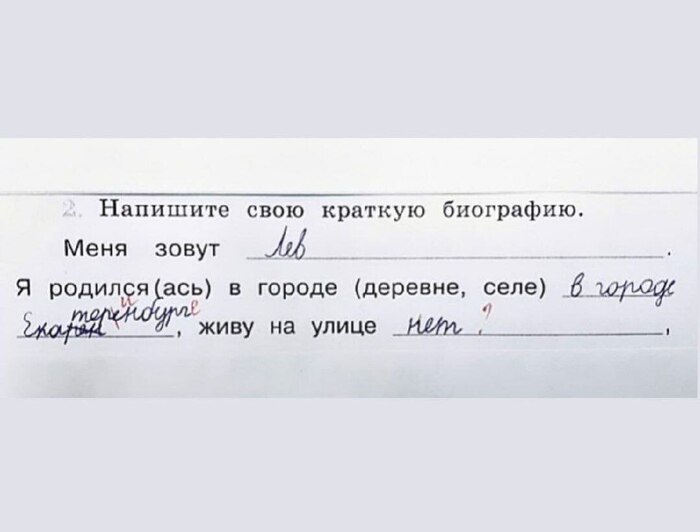 2. Напишите свою краткую биографию.
Меня зовут Лев.
Я родился(ась) в городе (деревне, селе) в городе
теренбурге
Екарен, живу на улице нет ?,